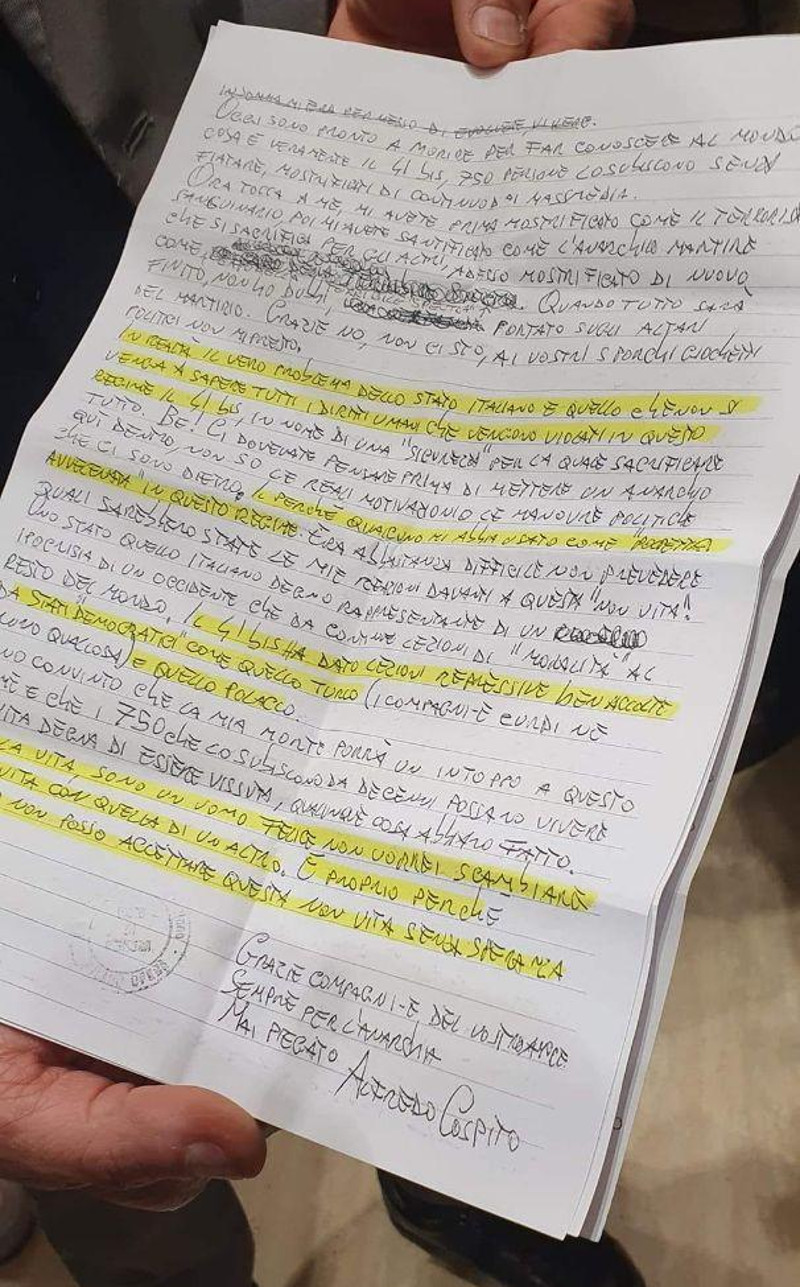 PERMESSO DI EVOLVERE, VIVERE.
OGGI SONO PRONTO A MORIRE PER FAR CONOSCERE AL MONDO
COSA È VERAMENTE IL 41 BIS, 750 PERSONE LO SUBISCONO SENZA
FIATARE, MOSTRIFICATI DI CONTINUO DAI MASSMEDIA.
ORA TOCCA A ME, MI AVETE PRIMA MOSTRIFICATO COME IL TERRORISTA
SANGUINARIO, POI MI AVETE SANTIFICATO COME L'ANARCHICO MARTIRE
CHE SI SACRIFICA PER GLI ALTRI, ADESSO MOSTRIFICATO DI NUOVO
COME, QUANDO TUTTO SARÀ
FINITO, NON HO DUBBI, PORTATO SUGLI ALTARI
DEL MARTIRIO. GRAZIE NO, NON CI STO, AI VOSTRI SPORCHI GIOCHETTI
POLITICI NON MI PRESTO.
IN REALTÀ IL VERO PROBLEMA DELLO STATO ITALIANO È QUELLO CHE NON SI
VENGA A SAPERE TUTTI I DIRITTI UMANI CHE VENGONO VIOLATI IN QUESTO
REGIME IL 41 BIS, IN NOME DI UNA "SICUREZZA" PER LA QUALE SACRIFICARE
TUTTO. BE! CI DOVEVATE PENSARE PRIMA DI METTERE UN ANARCHICO
QUI DENTRO, NON SO LE REALI MOTIVAZIONI O LE MANOVRE POLITICHE
CHE CI SONO DIETRO. IL PERCHÉ QUALCUNO MI ABBIA USATO COME "POLPETTA
AVVELENATA" IN QUESTO REGIME. ERA ABBASTANZA DIFFICILE NON PREVEDERE
QUALI SAREBBERO STATE LE MIE REAZIONI DAVANTI A QUESTA "NON VITA".
UNO STATO QUELLO ITALIANO DEGNO RAPPRESENTANTE DI UN
IPOCRISIA DI UN OCCIDENTE CHE DA CONTINUE LEZIONI DI "MORALITÀ" AL
RESTO DEL MONDO. IL 41 BIS HA DATO LEZIONI REPRESSIVE BEN ACCOLTE
DA STATI "DEMOCRATICI" COME QUELLO TURCO (I COMPAGNI-E CURDI NE
QUALCOSA) E QUELLO POLACCO.
CONVINTO CHE LA MIA MORTE PORRÀ UN INTOPPO A QUESTO
E CHE I 750 CHE LO SUBISCONO DA DECENNI POSSANO VIVERE
VITA DEGNA DI ESSERE VISSUTA, QUALUNQUE COSA ABBIANO FATTO.
LA VITA SONO UN UOMO FELICE NON VORREI SCAMBIARE
VITA CON QUELLA DI UN ALTRO. E PROPRIO PERCHÉ
NON POSSO ACCETTARE QUESTA NON VITA SENZA SPERANZA
GRAZIE COMPAGNI-E DEL VOSTRO AMORE
SEMPRE PER L'ANARCHIA
MAI PIEGATO ALFREDO COSPITO